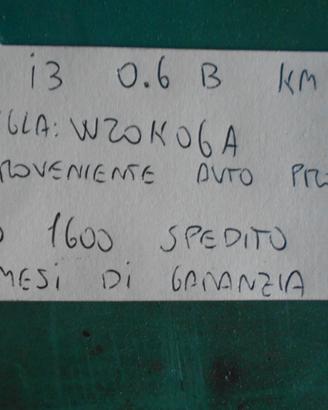 i3 0.6 B KM
GLA: W20K06A
ROVENIENTE AUTO PRO
O 1600 SPEDITO
MESI DI GARANZIA